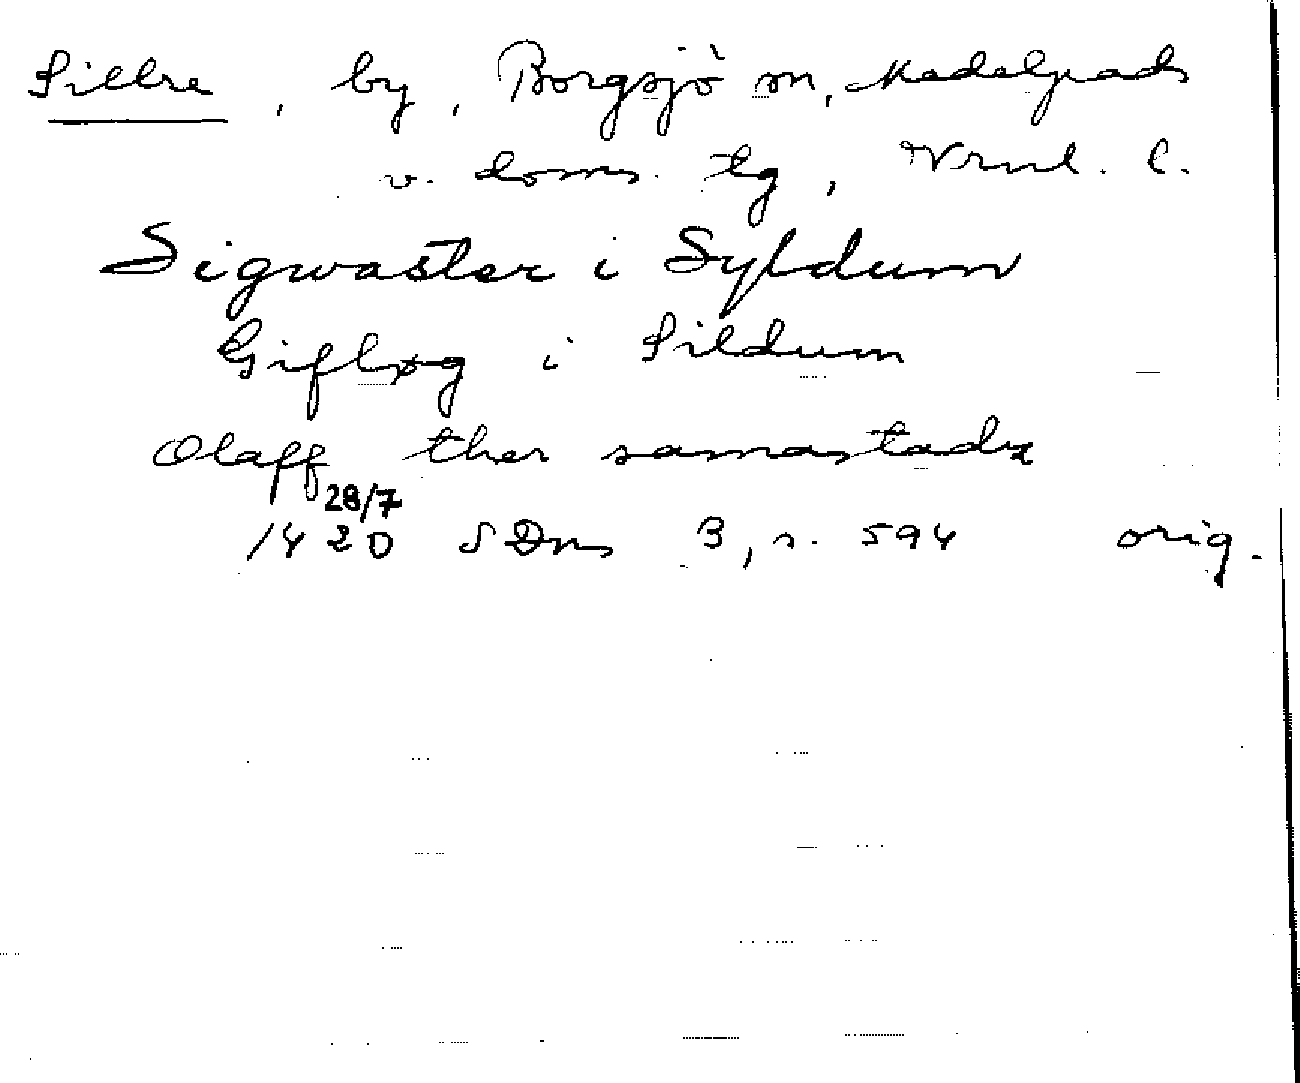 Sillre, by, Borgsjö sn, Medelpads
v. doms. tg, Vrnl. l.
Sigwaster i Syldum
Gifløg i Sildum
Olaff ther samastadz
28/7
1420 SDns 3, s. 594 orig.